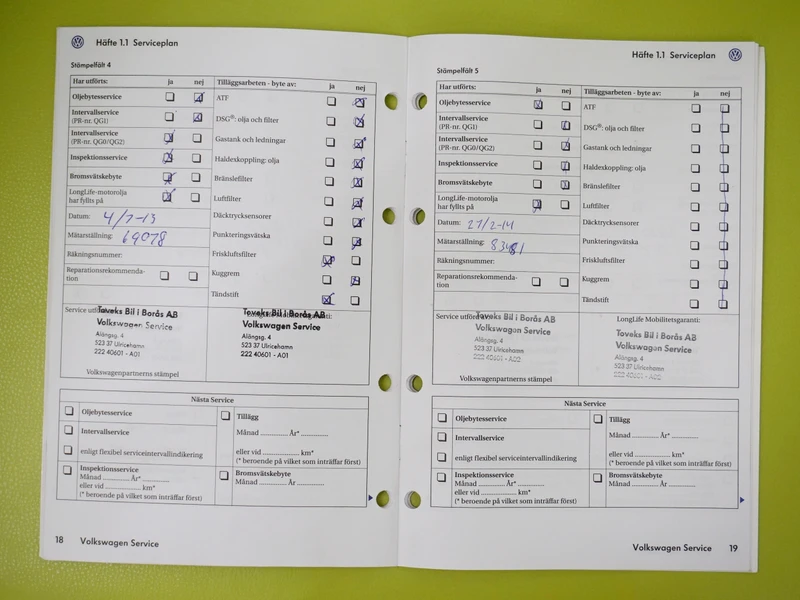 Häfte 1.1 Serviceplan
Stämpelfält 4
Har utförts: ja nej
Oljebytesservice
Intervallservice
(PR-nr. QG1)
Intervallservice
(PR-nr. QG0/QG2)
Inspektionsservice
Bromsvätskebyte
LongLife-motorolja
har fyllts på
Datum: 4/7-13
Mätarställning: 69078
Räkningsnummer:
Reparationsrekommenda-
tion
Tilläggsarbeten - byte av: ja nej
ATF
DSG®: olja och filter
Gastank och ledningar
Haldexkoppling: olja
Bränslefilter
Luftfilter
Däcktrycksensorer
Punkteringsvätska
Friskluftsfilter
Kuggrem
Tändstift
Service utförd
Toveks Bil i Borås AB
Volkswagen Service
Alöngsg. 4
523 37 Ulricehamn
222 40601 - A01
Volkswagenpartnerns stämpel
Toveks Bil i Borås AB
Volkswagen Service
Alöngsg. 4
523 37 Ulricehamn
222 40601 - A01
Nästa Service
Oljebytesservice
Intervallservice
enligt flexibel serviceintervallindikering
Inspektionsservice
Månad ............ År* ..............
eller vid ...................... km*
(* beroende på vilket som inträffar först)
Tillägg
Månad ............ År* ..............
eller vid ...................... km*
(* beroende på vilket som inträffar först)
Bromsvätskebyte
Månad ............ År ..............
18 Volkswagen Service
Häfte 1.1 Serviceplan
Stämpelfält 5
Har utförts: ja nej
Oljebytesservice
Intervallservice
(PR-nr. QG1)
Intervallservice
(PR-nr. QG0/QG2)
Inspektionsservice
Bromsvätskebyte
LongLife-motorolja
har fyllts på
Datum: 27/2-14
Mätarställning: 83481
Räkningsnummer:
Reparationsrekommenda-
tion
Tilläggsarbeten - byte av: ja nej
ATF
DSG®: olja och filter
Gastank och ledningar
Haldexkoppling: olja
Bränslefilter
Luftfilter
Däcktrycksensorer
Punkteringsvätska
Friskluftsfilter
Kuggrem
Tändstift
Service utförd
Toveks Bil i Borås AB
Volkswagen Service
Alöngsg. 4
523 37 Ulricehamn
222 40601 - A02
Volkswagenpartnerns stämpel
LongLife Mobilitetsgaranti:
Toveks Bil i Borås AB
Volkswagen Service
Alöngsg. 4
523 37 Ulricehamn
222 40601 - A02
Nästa Service
Oljebytesservice
Intervallservice
enligt flexibel serviceintervallindikering
Inspektionsservice
Månad ............ År* ..............
eller vid ...................... km*
(* beroende på vilket som inträffar först)
Tillägg
Månad ............ År* ..............
eller vid ...................... km*
(* beroende på vilket som inträffar först)
Bromsvätskebyte
Månad ............ År ..............
Volkswagen Service 19